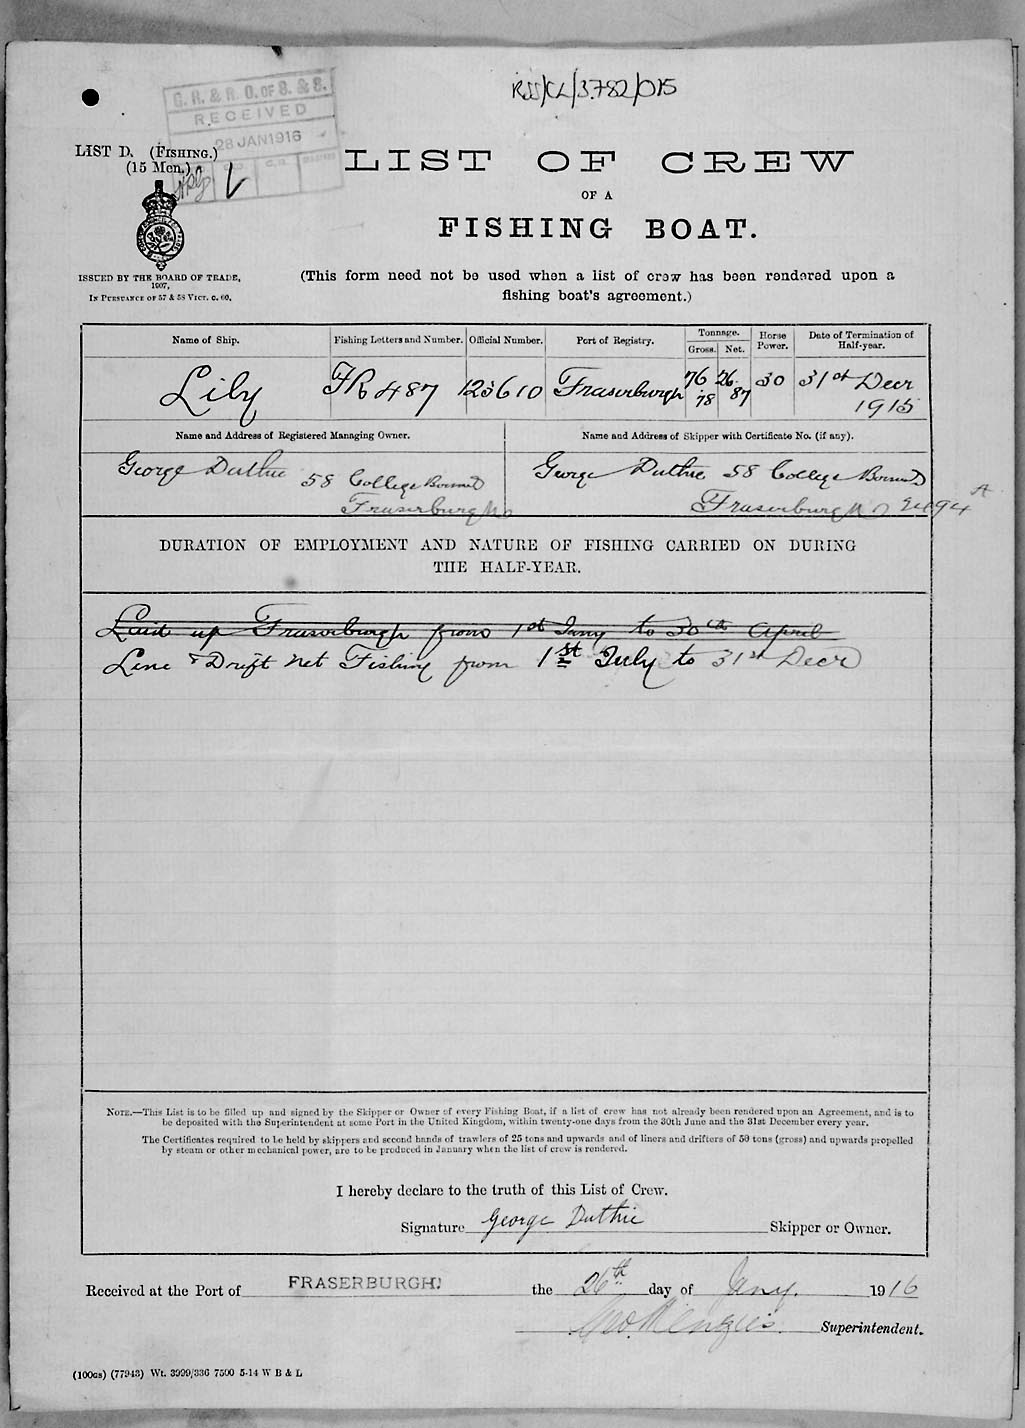 RSS/CL/3782/015
G. R. & R. O. OF S. & S.
RECEIVED
28 JAN 1916
LIST D. (FISHING.)
(15 Men.)
LIST OF CREW
OF A
FISHING BOAT.
ISSUED BY THE BOARD OF TRADE,
1907,
IN PURSUANCE OF 57 & 58 VICT. C. 60.
(This form need not be used when a list of crew has been rendered upon a
fishing boat's agreement.)
Name of Ship. Fishing Letters and Number. Official Number. Port of Registry. Tonnage. Gross. Net. Horse Power. Date of Termination of Half-year.
Lily FR 487 123610 Fraserburgh 76.78 26.87 30 31st Decr 1915
Name and Address of Registered Managing Owner. Name and Address of Skipper with Certificate No. (if any).
George Duthie 58 College Bound George Duthie 58 College Bound
Fraserburgh Fraserburgh No 9494 A
DURATION OF EMPLOYMENT AND NATURE OF FISHING CARRIED ON DURING
THE HALF-YEAR.
Laid up Fraserburgh from 1st Jany to 30th April
Line & Drift net Fishing from 1st July to 31st Decr
NOTE.—This List is to be filled up and signed by the Skipper or Owner of every Fishing Boat, if a list of crew has not already been rendered upon an Agreement, and is to
be deposited with the Superintendent at some Port in the United Kingdom, within twenty-one days from the 30th June and the 31st December every year.
The Certificates required to be held by skippers and second hands of trawlers of 25 tons and upwards and of liners and drifters of 50 tons (gross) and upwards propelled
by steam or other mechanical power, are to be produced in January when the list of crew is rendered.
I hereby declare to the truth of this List of Crew.
Signature George Duthie Skipper or Owner.
Received at the Port of FRASERBURGH. the 26th day of Jany. 1916
Superintendent.
(100Gs) (77943) Wt. 3999/336 7500 5-14 W B & L